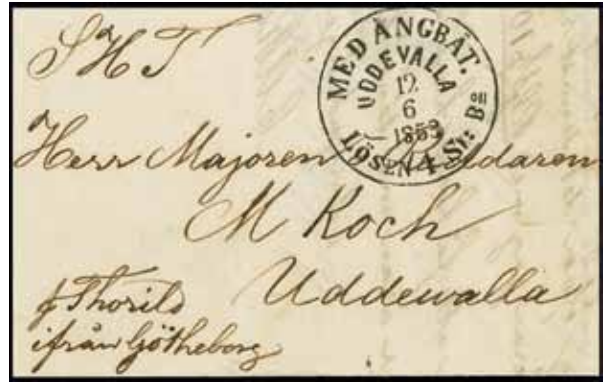 S H T
MED ÅNGBÅT.
UDDEVALLA
12
6
1853
LÖSEN 4 Sk: Bco
Herr Majoren Riddaren
M Koch
Uddewalla
p Thorild
ifrån Götheborg